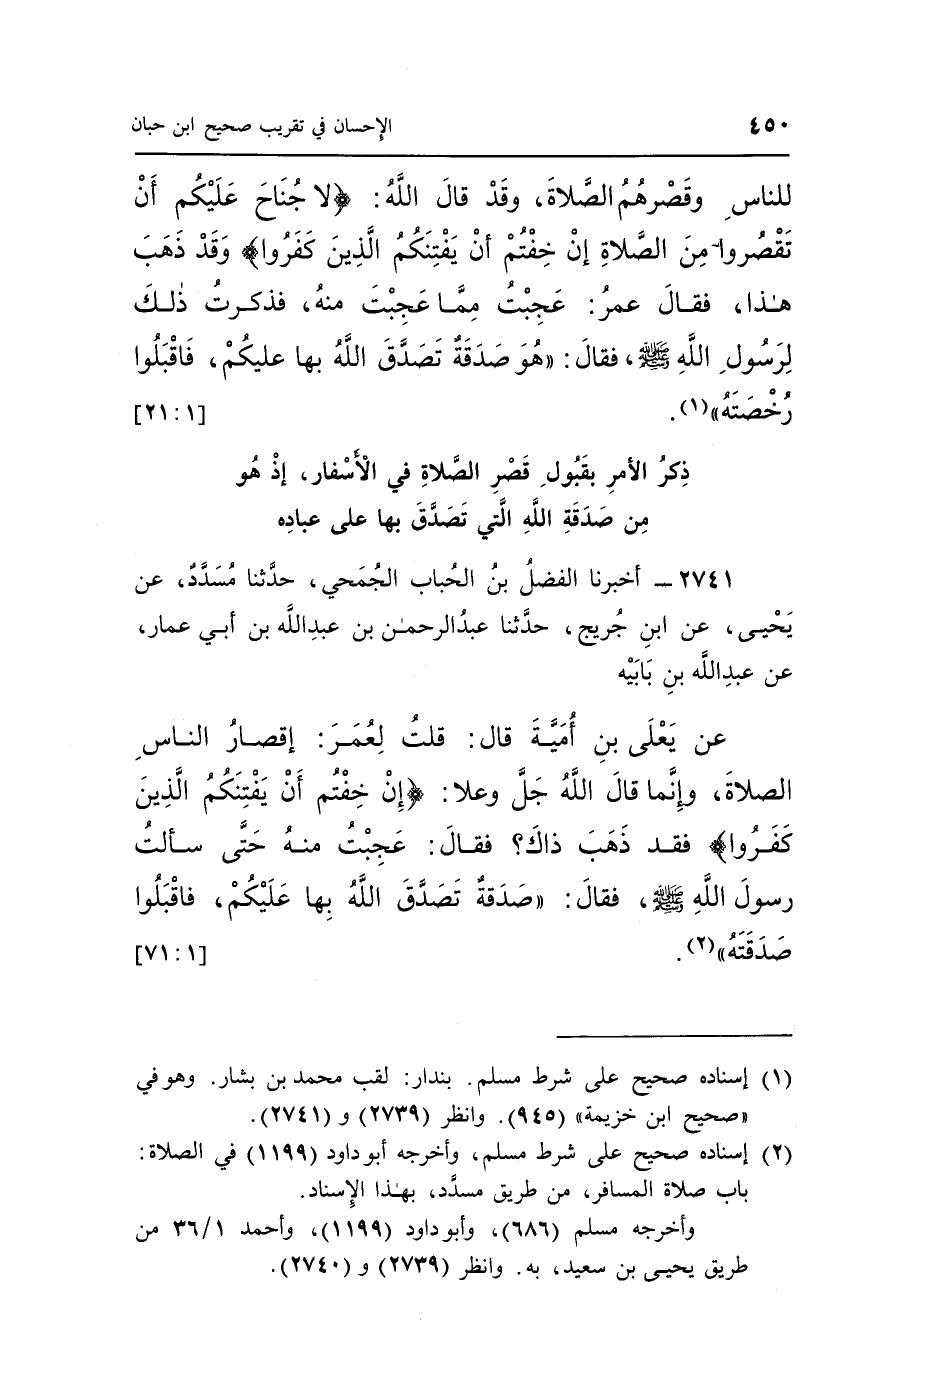 ٤٥٠ الإحسان في تقريب صحيح ابن حبان
للناسِ وقَصْرِهُمُ الصَّلاةَ، وقَدْ قالَ اللَّهُ: ﴿لا جُنَاحَ عَلَيْكُم أَنْ
تَقْصُروا مِنَ الصَّلاةِ إنْ خِفْتُمْ أنْ يَفْتِنَكُمُ الَّذِينَ كَفَرُوا﴾ وَقَدْ ذَهَبَ
هـٰذا، فقـالَ عمرُ: عَجِبْتُ مِمَّـا عَجِبْتَ منهُ، فذكـرتُ ذٰلـكَ
لِرَسُولِ اللَّهِ ﷺ، فقالَ: «هُوَ صَدَقَةٌ تَصَدَّقَ اللَّهُ بها عليكُمْ، فَاقْبَلُوا
رُخْصَتَهُ»(١). [٢١:١]
ذِكرُ الأمرِ بقَبُولِ قَصْرِ الصَّلاةِ في الْأَسْفار، إذْ هُو
مِن صَدَقَةِ اللَّهِ الَّتي تَصَدَّقَ بها على عبادِه
٢٧٤١ ــ أخبرنا الفضلُ بنُ الحُباب الجُمَحي، حدَّثنا مُسَدَّدٌ، عن
يَحْيـى، عن ابنِ جُريج، حدَّثنا عبدُالرحمـٰن بن عبدِاللَّه بن أبـي عمار،
عن عبدِاللَّه بنِ بَابَيْه
عن يَعْلَى بنِ أُمَيَّـةَ قال: قلتُ لِعُمَـرَ: إقصـارُ النـاسِ
الصلاةَ، وإنَّما قالَ اللَّهُ جَلَّ وعلا: ﴿إنْ خِفْتُم أَنْ يَفْتِنَكُمُ الَّذِينَ
كَفَـرُوا﴾ فقـد ذَهَبَ ذاكَ؟ فقـالَ: عَجِبْتُ منـهُ حَتَّى سـألتُ
رسولَ اللَّهِ ﷺ، فقالَ: «صَدَقةٌ تَصَدَّقَ اللَّهُ بِها عَلَيْكُمْ، فاقْبَلُوا
صَدَقَتَهُ»(٢). [٧١:١]
(١) إسناده صحيح على شرط مسلم. بندار: لقب محمد بن بشار. وهو في
«صحيح ابن خزيمة» (٩٤٥). وانظر (٢٧٣٩) و (٢٧٤١).
(٢) إسناده صحيح على شرط مسلم، وأخرجه أبو داود (١١٩٩) في الصلاة:
باب صلاة المسافر، من طريق مسدَّد، بهـٰذا الإِسناد.
وأخرجه مسلم (٦٨٦)، وأبو داود (١١٩٩)، وأحمد ٣٦/١ من
طريق يحيـى بن سعيد، به. وانظر (٢٧٣٩) و (٢٧٤٠).